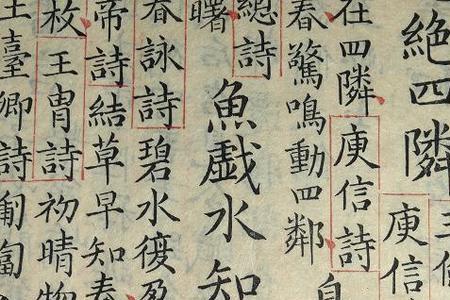 絕四隣
庾信
在四隣庾信詩
春驚鳴動四鄰
總詩
曙
魚戲水知
春詠詩碧水復盈
帝詩結草早知春
枚王胄詩初晴物
王臺卿詩匍匐